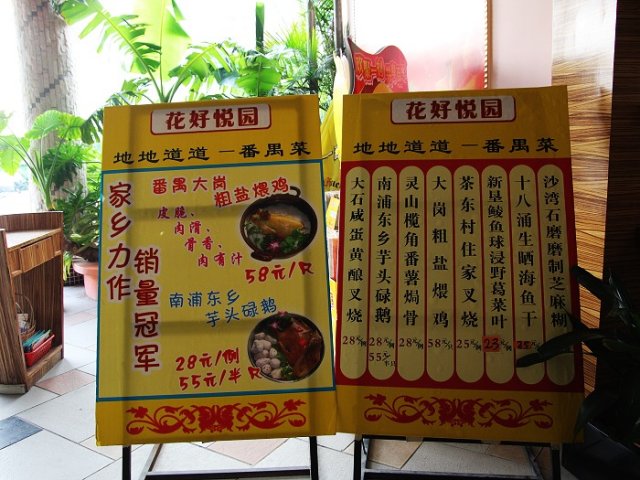 花好悦园
地地道道一番禺菜
家乡力作
销量冠军
番禺大岗
粗盐煨鸡
皮脆、
肉滑、
骨香、
肉有汁
58元/只
南浦东乡
芋头碌鹅
28元/例
55元/半只
花好悦园
地地道道一番禺菜
大石咸蛋黄酿叉烧 28元/例
南浦东乡芋头碌鹅 28元/例 55元/半只
灵山榄角番薯焗骨 28元/例
大岗粗盐煨鸡 58元/只
茶东村住家叉烧 25元/例
新垦鲮鱼球浸野葛菜叶 23元/例
十八涌生晒海鱼干
沙湾石磨磨制芝麻糊